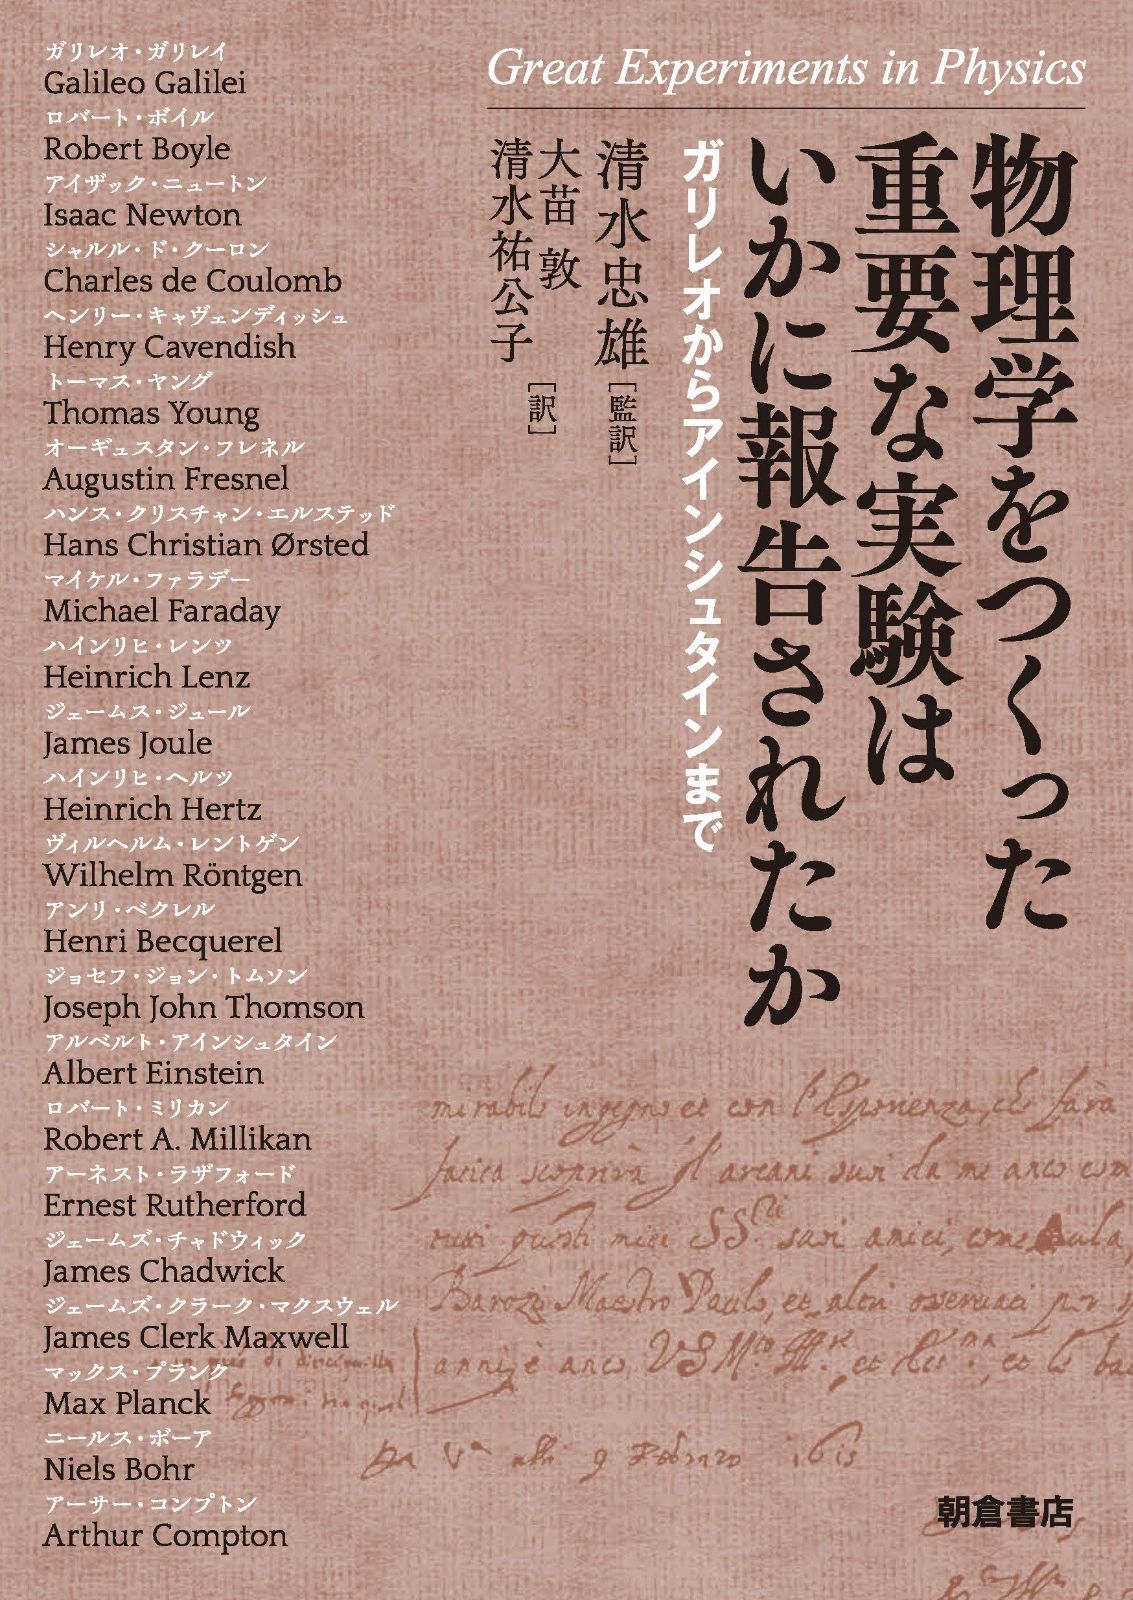 Great Experiments in Physics
物理学をつくった
重要な実験は
いかに報告されたか
ガリレオからアインシュタインまで
清水忠雄[監訳]
大苗 敦
清水祐公子
[訳]
ガリレオ・ガリレイ
Galileo Galilei
ロバート・ボイル
Robert Boyle
アイザック・ニュートン
Isaac Newton
シャルル・ド・クーロン
Charles de Coulomb
ヘンリー・キャヴェンディッシュ
Henry Cavendish
トーマス・ヤング
Thomas Young
オーギュスタン・フレネル
Augustin Fresnel
ハンス・クリスチャン・エルステッド
Hans Christian Ørsted
マイケル・ファラデー
Michael Faraday
ハインリヒ・レンツ
Heinrich Lenz
ジェームス・ジュール
James Joule
ハインリヒ・ヘルツ
Heinrich Hertz
ヴィルヘルム・レントゲン
Wilhelm Röntgen
アンリ・ベクレル
Henri Becquerel
ジョセフ・ジョン・トムソン
Joseph John Thomson
アルベルト・アインシュタイン
Albert Einstein
ロバート・ミリカン
Robert A. Millikan
アーネスト・ラザフォード
Ernest Rutherford
ジェームズ・チャドウィック
James Chadwick
ジェームズ・クラーク・マクスウェル
James Clerk Maxwell
マックス・プランク
Max Planck
ニールス・ボーア
Niels Bohr
アーサー・コンプトン
Arthur Compton
朝倉書店